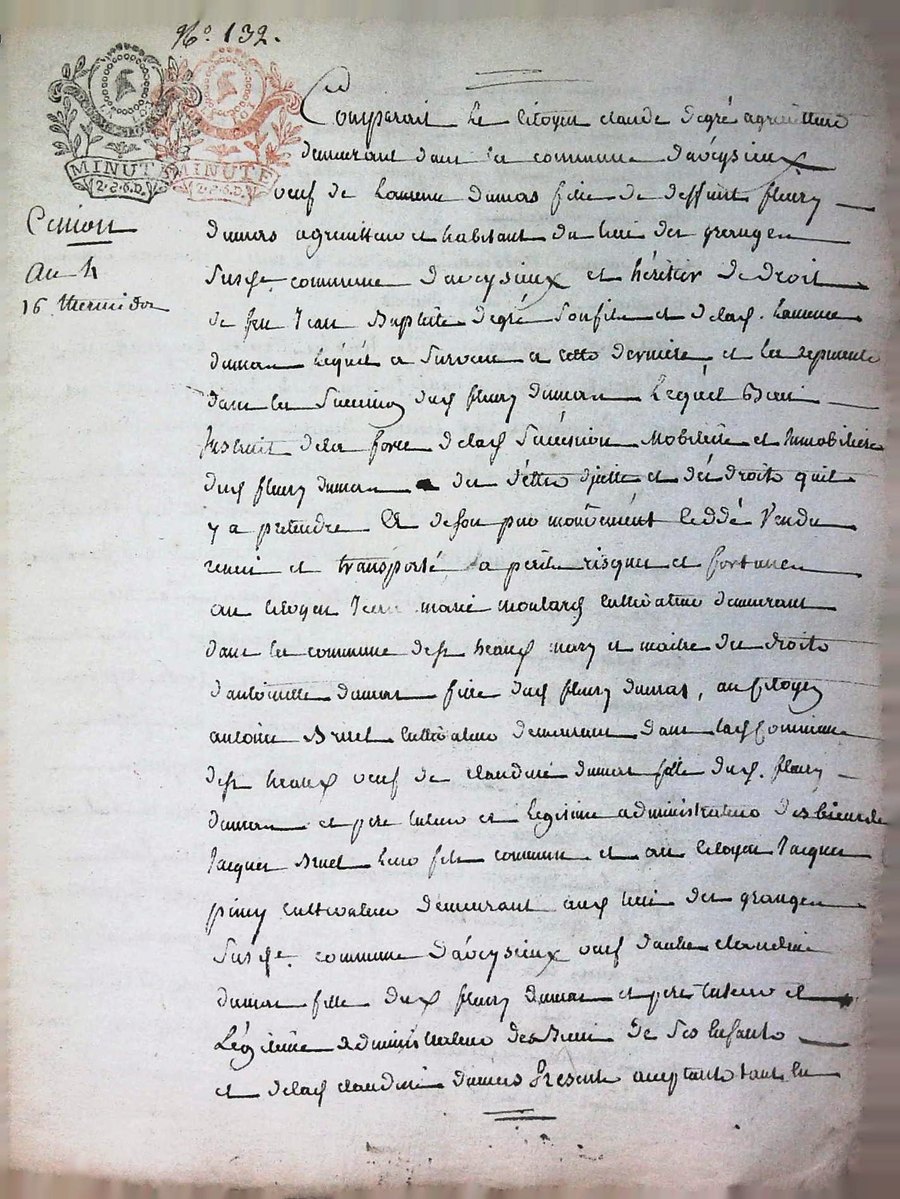 N.º 132.
MINUTE
MINUTE
2.5.6.D.
2.5.6.D.
Comparait le Citoyen claude degré agriculteur
demeurant dans la commune d'aveysieux
veuf de Laurence dumas fille de deffunt fleury
Cession
dumas agriculteur et habitant du lieu des granges
an 4
susd.e commune d'aveysieux et héritier de droit
16 thermidor
de feu Jean Baptiste degré son fils et de lad. Laurence
dumas lequel a survecu a cette derniere et la represente
dans la succession dud fleury dumas Lequel Bien
Instruit de la force de lad succession Mobiliere et Immobiliere
dud fleury dumas des dettes d'jcelle et des droits quil
y a pretendre de son pur mouvement cedde Vendu
remis et transporté a perils risques et fortunes
au citoyen Jean marie moulard cultivateur demeurant
dans la commune de st heand mary et maitre des droits
d'antoinette dumas fille dud fleury dumas, au Citoyen
antoine Bruel cultivateur demeurant dans lad Commune
de st heand veuf de claudine dumas fille dud. fleury
dumas et pere tuteur et legitime administrateur des biens de
Jacques Bruel leur fils commun et au Citoyen Jacques
piney cultivateur demeurant aud lieu des granges
susd.e commune d'aveysieux veuf d'autre claudine
dumas fille dud fleury dumas et pere tuteur et
Légitime administrateur des Biens de ses Enfants
et de lad claudine dumas Presents acceptants tant en